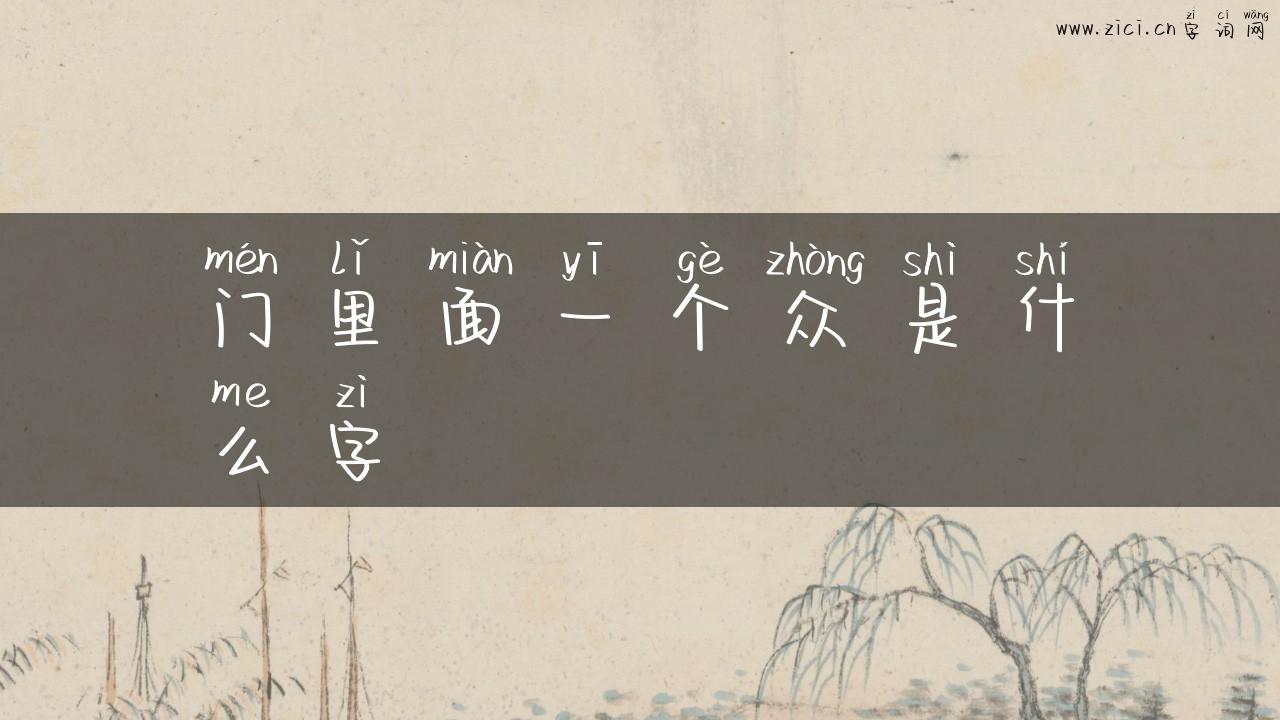 www.zici.cn 字词网
zì cí wǎng
mén lǐ miàn yī gè zhòng shì shí
门里面一个众是什
me zì
么字